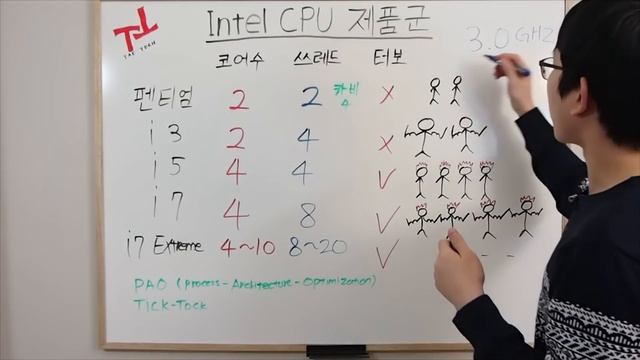 Intel CPU 제품군
3.0 GHz
TAE TECH
코어수 쓰레드 터보
펜티엄 2 2 카비 4 X
i3 2 4 X
i5 4 4 ✓
i7 4 8 ✓
i7 Extreme 4~10 8~20 ✓
PAO (Process-Architecture-Optimization)
TICK-TOCK